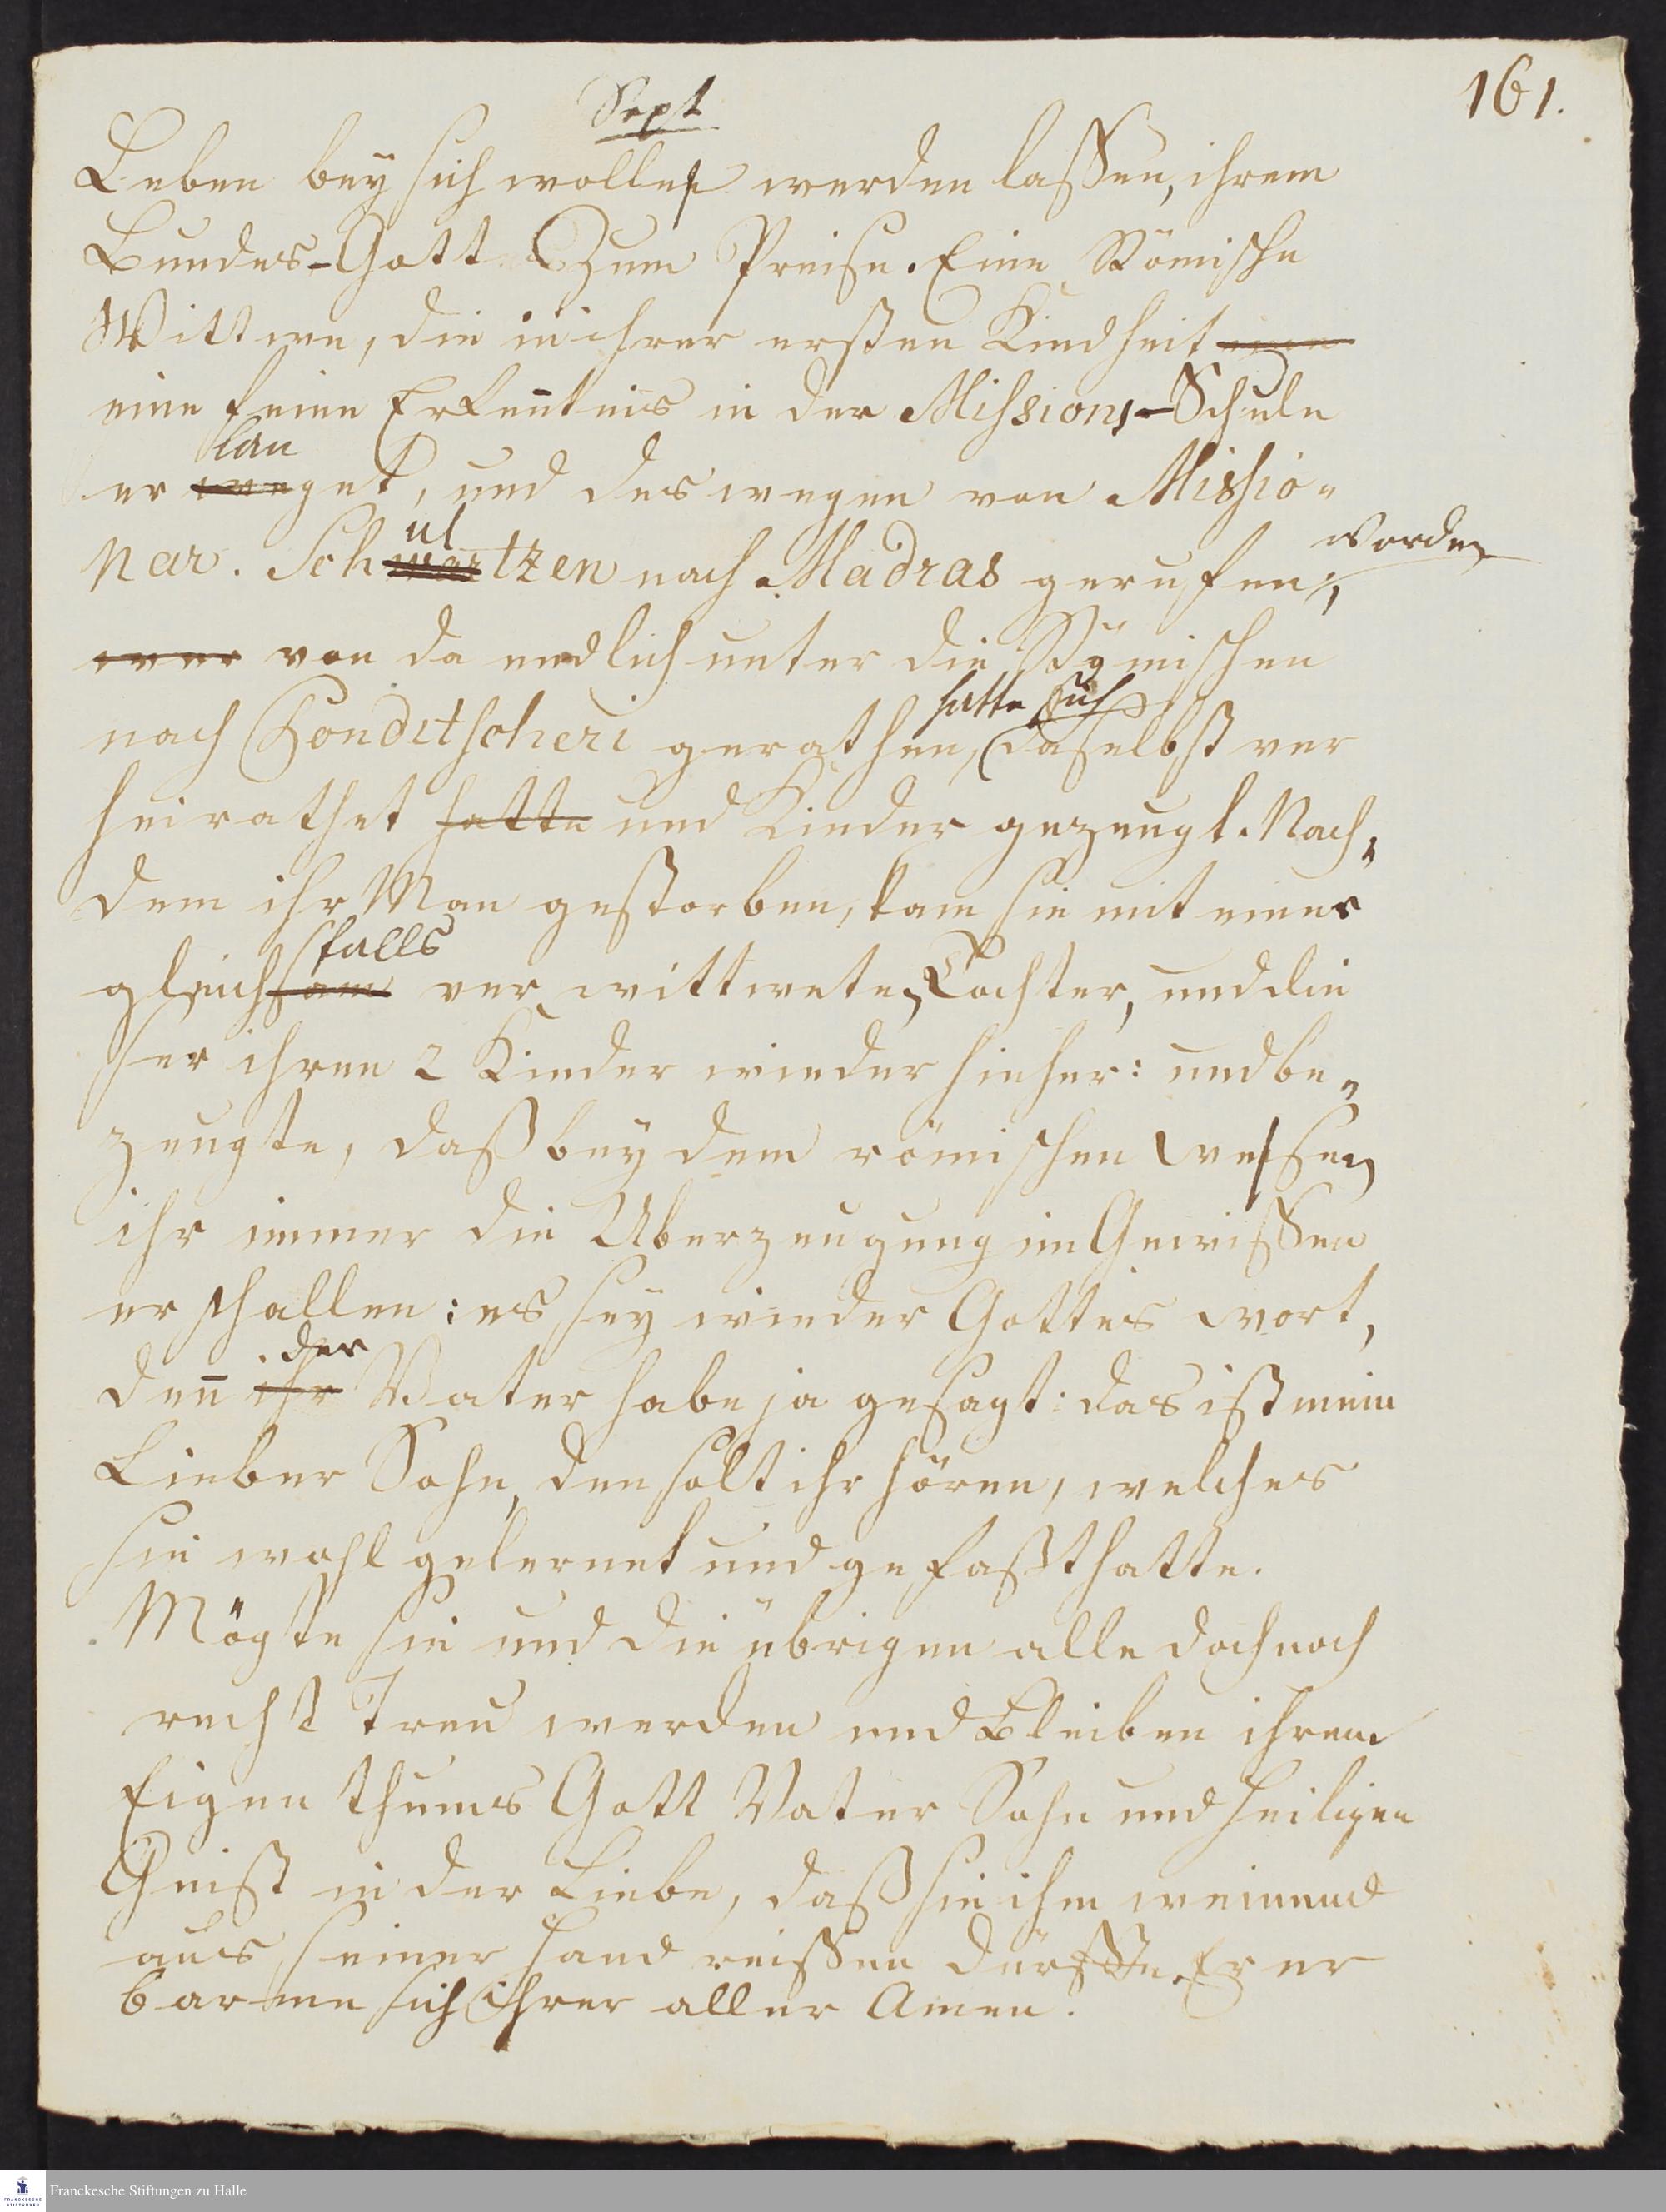 161.
Sept
Leben bey sich wollen werden lassen, ihrem
Bundes-Gott Zum Preise. Eine Römische
Wittwe, die in ihrer ersten Kindheit eine
eine feine Erkentnis in der Missions-Schule
lan
er weget, und deswegen von Missio-
ul worden
nar. Schwartzen nach Madras gerufen,
wer von da endlich unter die Römischen
hatte sich
nach Ponditscheri gerathen, daselbst ver
heirathet hatte und Kinder gezeugt. Nach-
dem ihr Man gestorben, kam sie mit einer
falls
gleichsam ver wittweten Tochter, und die
ser ihren 2 Kinder wieder hieher: und be-
zeugte, daß bey dem römischen wesen
ihr immer die Uberzeugung im Gewissen
erschallen: es sey wieder Gottes wort,
der
deñ ihr Vater habe ja gesagt: das ist mein
Lieber Sohn, den solt ihr hören, welches
sie wohl gelernet und gefaßt hatte.
Mögte sie und die übrigen alle doch noch
recht Treu werden und Bleiben ihrem
Eigenthums Gott Vater Sohn und heiligen
Geist in der Liebe, daß sie ihm niemand
aus seiner Hand reissen dürffte. Er er
barme sich ihrer aller Amen.
FRANCKESCHE STIFTUNGEN
Franckesche Stiftungen zu Halle